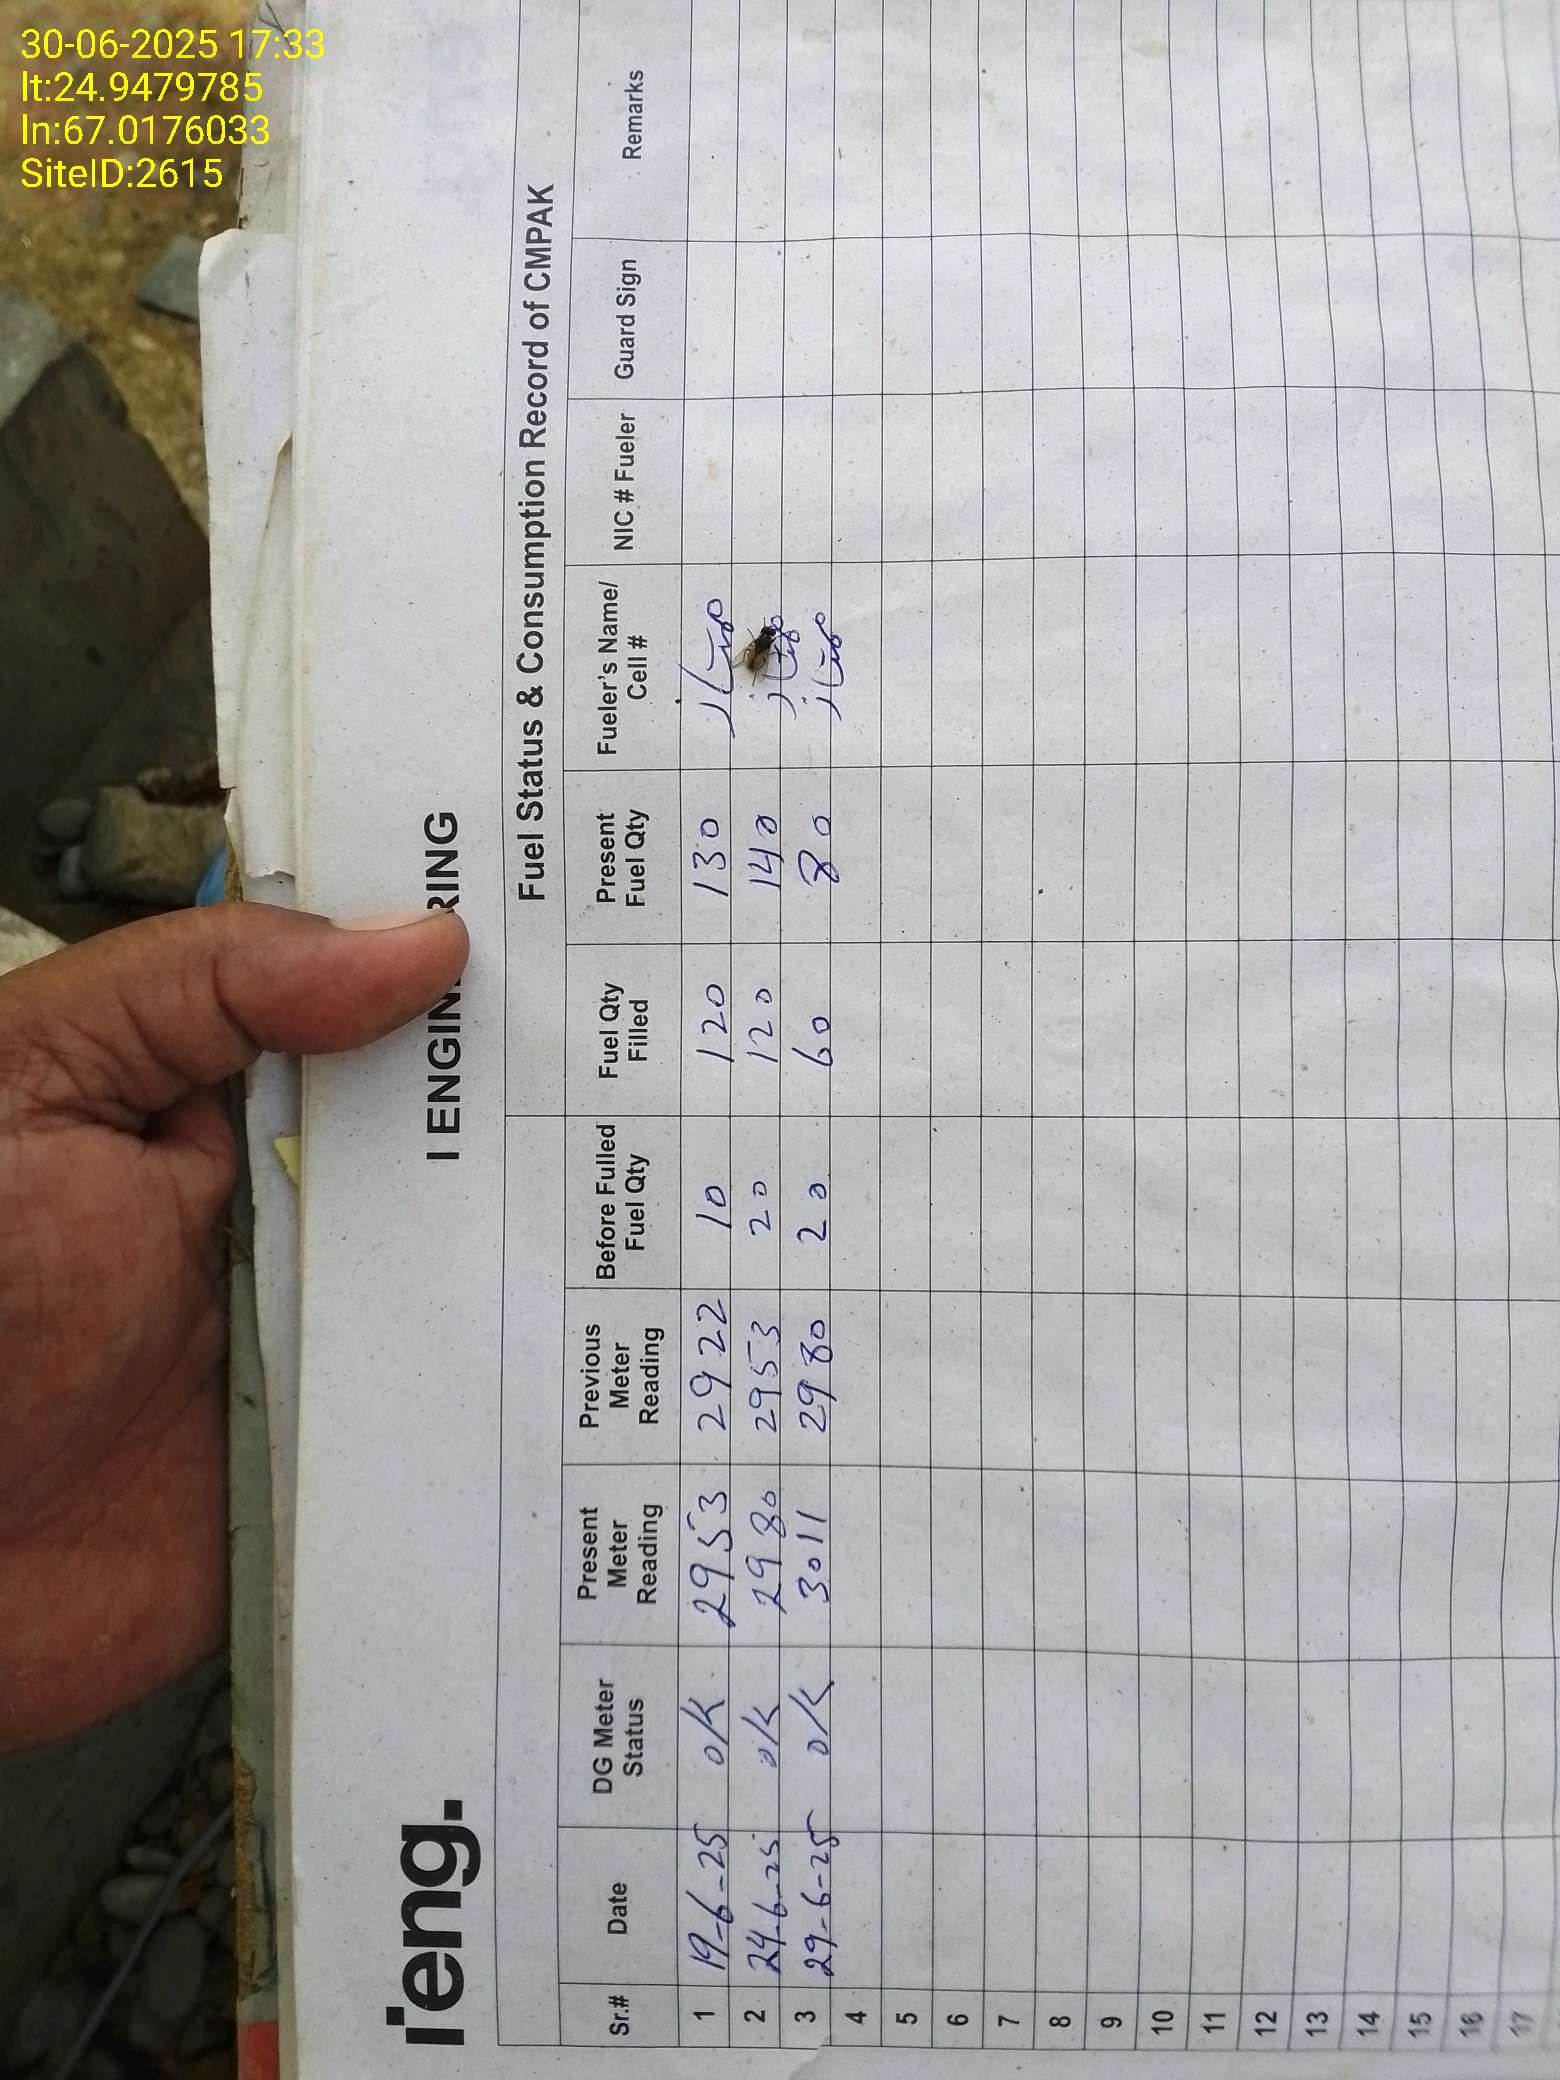 30-06-2025 17:33
lt:24.9479785
ln:67.0176033
SiteID:2615
i'eng.
I ENGIN RING
Fuel Status & Consumption Record of CMPAK
Sr.# Date DG Meter Status Present Meter Reading Previous Meter Reading Before Fulled Fuel Qty Fuel Qty Filled Present Fuel Qty Fueler's Name/ Cell # NIC # Fueler Guard Sign Remarks
1 19-6-25 O/K 2953 2922 10 120 130
2 24-6-25 O/K 2980 2953 20 120 140
3 29-6-25 O/K 3011 2980 20 60 80
4
5
6
7
8
9
10
11
12
13
14
15
16
17